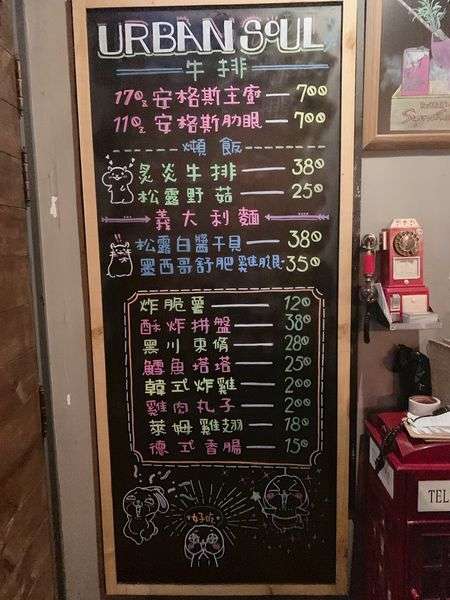 URBAN SOUL
牛排
17oz 安格斯主廚 — 700
11oz 安格斯肋眼 — 700
嫩飯
炙炎牛排 — 380
松露野菇 — 250
義大利麵
松露白醬干貝 — 380
墨西哥舒肥雞腿 350
炸脆薯 — 120
酥炸拼盤 — 380
黑川東脩 — 280
鱈魚塔塔 — 250
韓式炸雞 — 200
雞肉丸子 — 200
萊姆雞翅 — 180
德式香腸 — 150
好吃
TEL